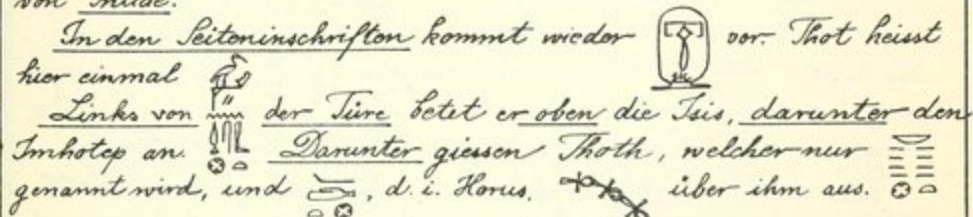 In den Seiteninschriften kommt wieder vor. Thot heisst
hier einmal
Links von der Türe betet er oben die Isis, darunter den
Imhotep an. Darunter giessen Thoth, welcher nur
genannt wird, und , d. i. Horus, über ihm aus.